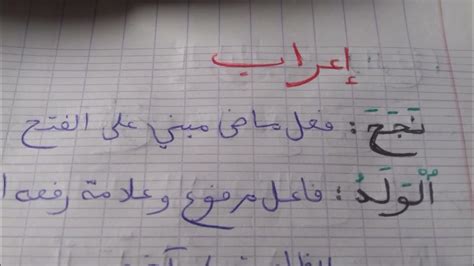 إعراب
نَجَحَ : فعل ماض مبني على الفتح
ٱلْوَلَدُ : فاعل مرفوع وعلامة رفعه ا